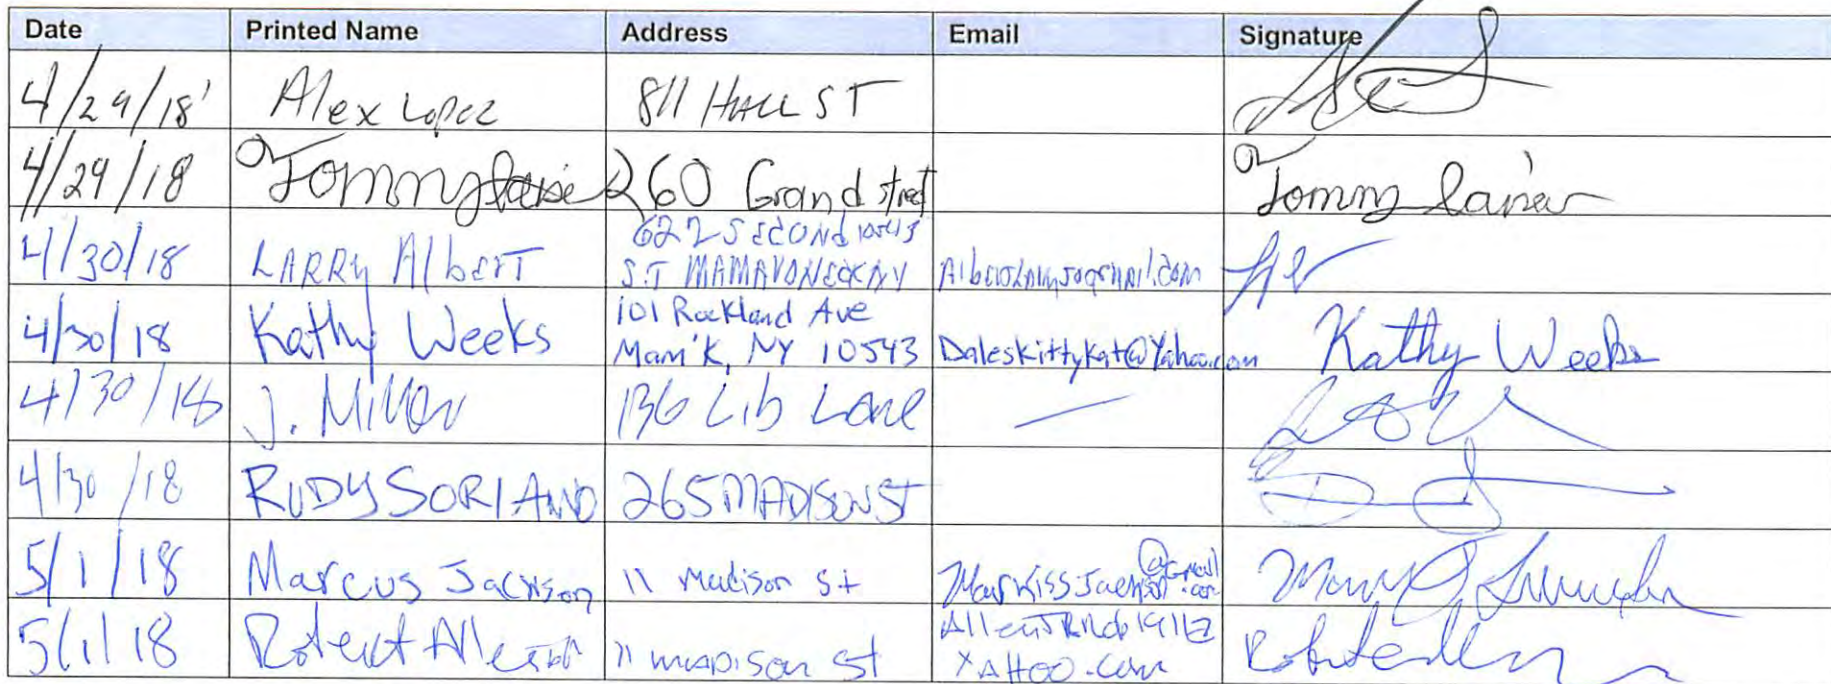 Date Printed Name Address Email Signature
4/29/18 Alex Lopez 811 Hall ST
4/29/18 Tommy 260 Grand street Tommy
4/30/18 LARRY AlbERT 622 SECONd 10543
S.T MAMARONECK NY
4/30/18 Kathy Weeks 101 Rockland Ave
Mam'k, NY 10543 DalesKittyKat@Yahoo.com Kathy Weeks
4/30/18 J. Miller 136 Lib Lane —
4/30/18 RUDY SORIANO 265 MADISON ST
5/1/18 Marcus Jackson 11 Madison St
5/1/18 Robert Allen 11 MADISON St
YAHOO.com